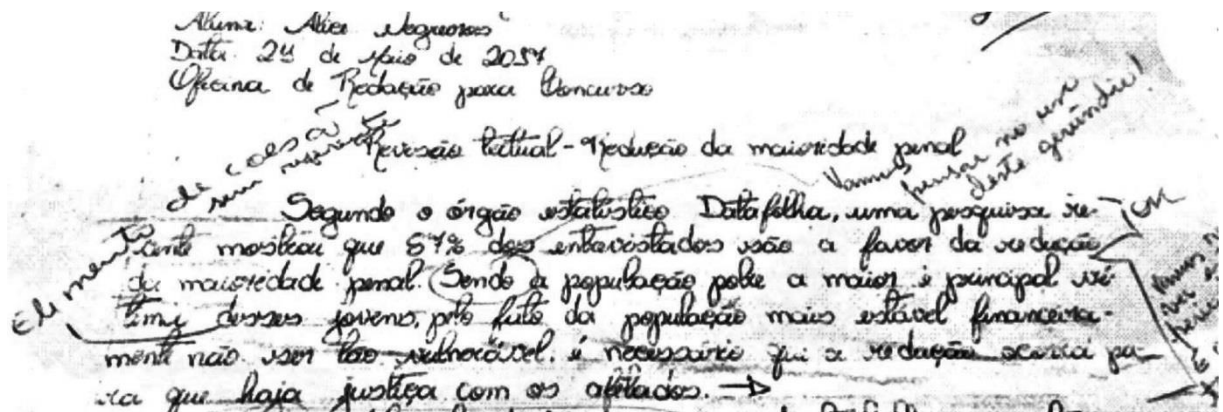 Aluna: Alice
Data: 24 de Maio de
Oficina de Redação para Concurso
Revisão textual - Redução da maioridade penal
Vamos pensar no uso deste gerúndio!
Elemento de coesão sem
Segundo o órgão estatístico Datafolha, uma pesquisa re-
cente mostrou que 87% dos entrevistados são a favor da redução
da maioridade penal. Sendo a população pobre a maior e principal ví
tima desses jovens, pelo fato da população mais estável financeira-
mente não ser tão vulnerável. é necessário que a redução ocorra pa-
ra que haja justiça com os afetados.